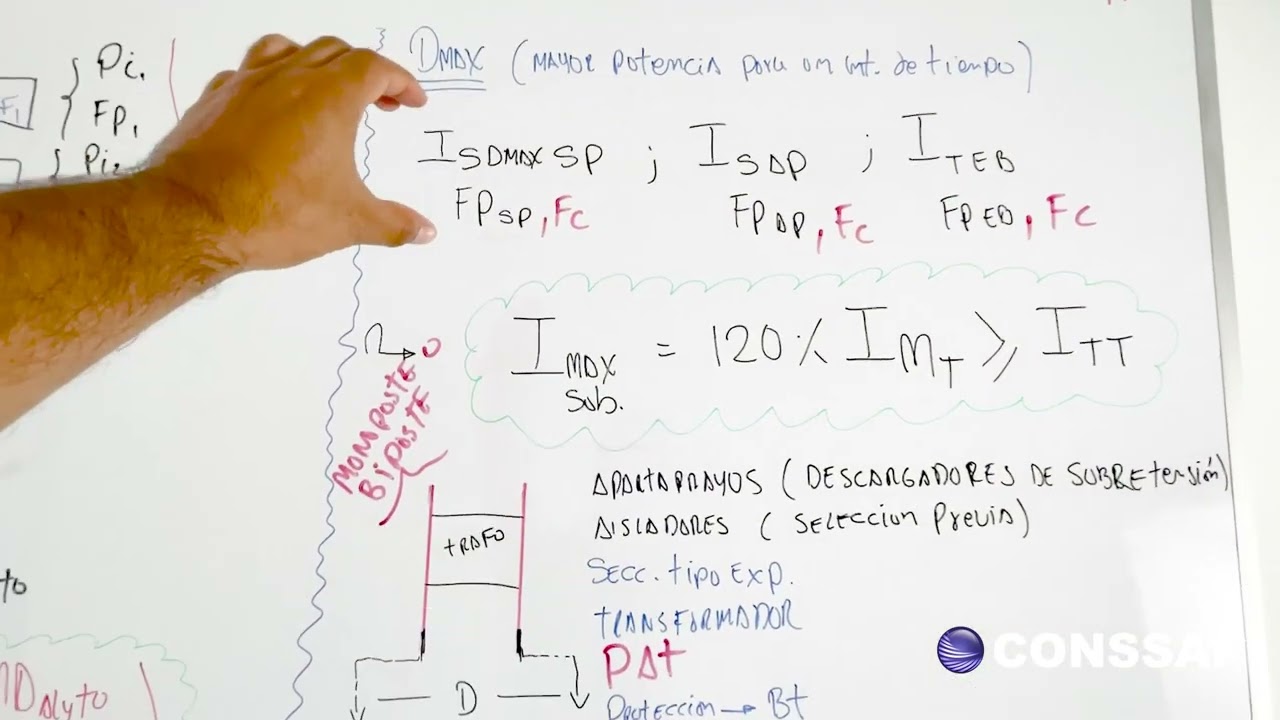 Pi1
FP1
F1
Pi2
DMAX (MAYOR Potencia para un int. de tiempo)
ISDMAXSP ; ISAP ; ITEB
FPSP, Fc FPAP, Fc FPEB, Fc
IMAX Sub. = 120% IMT ≥ ITT
MONOPOSTE
BiPOSTE
APARTARRAYOS (DESCARGADORES DE SUBREtensión)
AISLADORES (SELECCION PREVIA)
SECC. tipo EXP.
TRANSFORMADOR
PAt
Proteccion → Bt
tRAFO
D
to
CONSSA